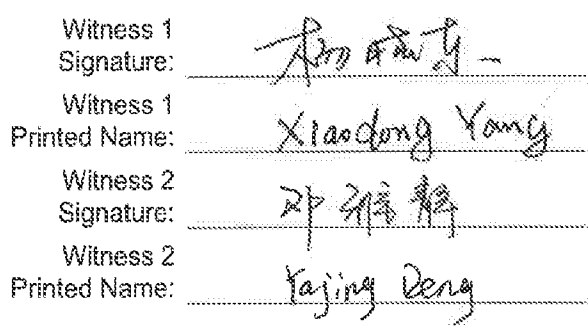 Witness 1
Signature: 杨晓东
Witness 1
Printed Name: Xiaodong Yang
Witness 2
Signature: 邓雅静
Witness 2
Printed Name: Yajing Deng